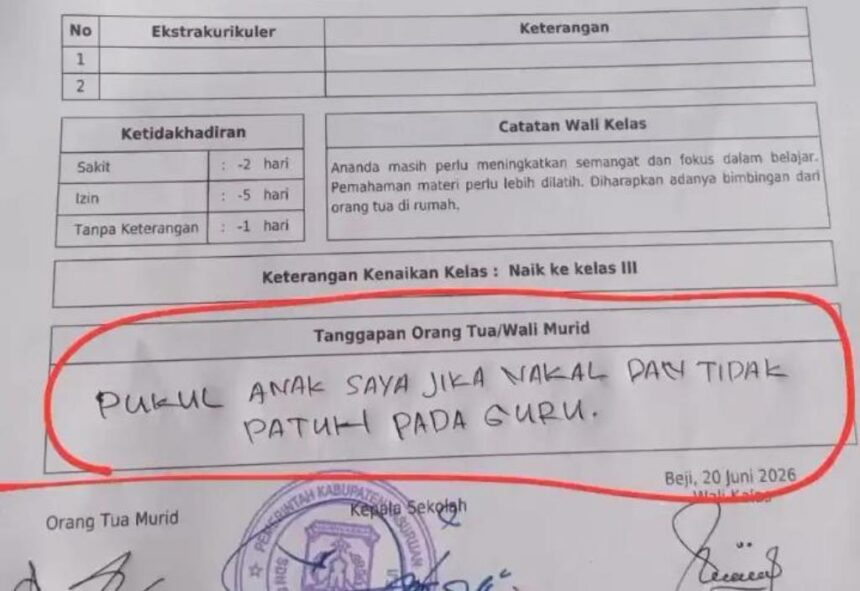 No Ekstrakurikuler Keterangan
1
2
Ketidakhadiran
Sakit : -2 hari
Izin : -5 hari
Tanpa Keterangan : -1 hari
Catatan Wali Kelas
Ananda masih perlu meningkatkan semangat dan fokus dalam belajar.
Pemahaman materi perlu lebih dilatih. Diharapkan adanya bimbingan dari
orang tua di rumah.
Keterangan Kenaikan Kelas : Naik ke kelas III
Tanggapan Orang Tua/Wali Murid
PUKUL ANAK SAYA JIKA NAKAL DAN TIDAK
PATUH PADA GURU.
Beji, 20 Juni 2026
Wali Kelas
Orang Tua Murid
Kepala Sekolah
PEMERINTAH KABUPATEN